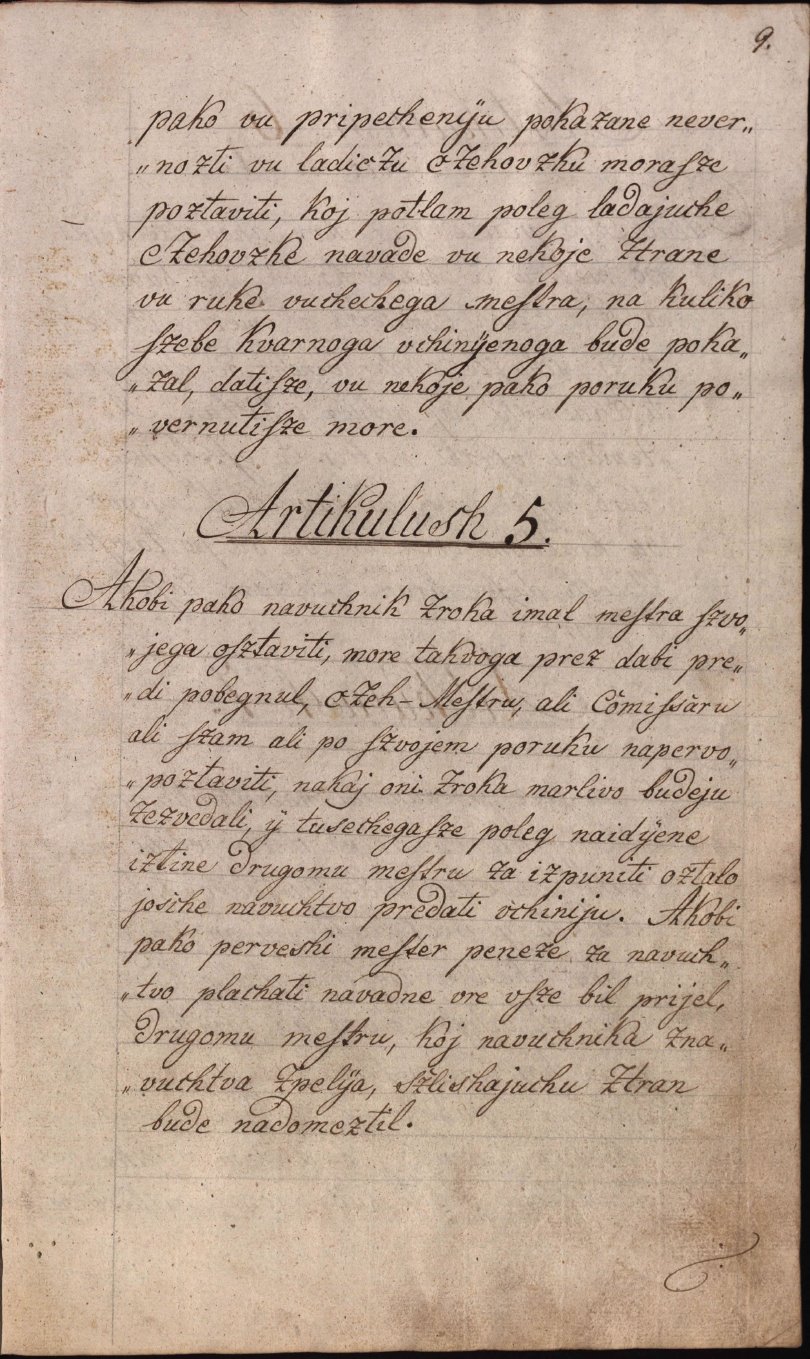 9.
pako vu pripecheniju pokazane never„
„nozti vu ladiczu czehovzku morasze
poztaviti, koj potlam poleg ladajuche
czehovzke navade vu nekoje ztrane
vu ruke vuchechega mestra, na kuliko
szebe kvarnoga vchinyenoga bude poka„
„zal, datisze, vu nekoje pako poruku po„
„vernutisze more.
Artikulush 5.
Akobi pako navuchnik zroka imal mestra szvo„
„jega osztaviti, more takvoga prez dabi pre„
„di pobegnul, czeh-Mestru, ali Comissaru
ali szam ali po szvojem poruku napervo„
„poztaviti, nakaj oni zroka marlivo budeju
zezvedali, ÿ tusechegasze poleg naidÿene
iztine drugomu mestru za izpuniti oztalo
josche navuchtvo predati vchiniju. Akobi
pako perveshi mester peneze za navuch„
„tvo plachati navadne vre vsze bil prijel,
drugomu mestru, koj navuchnika zna„
„vuchtva zpelÿa, szlishajuchu ztran
bude nadomeztil.